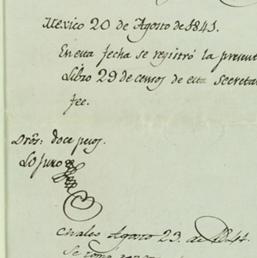 Mexico 20 de Agosto de 1841.
En esta fecha se registró la present
Libro 29 de censos de esta Secreta
fee.
Dros. doce pesos.
Lo juro
Agosto 23. de 1841.
Se tomo